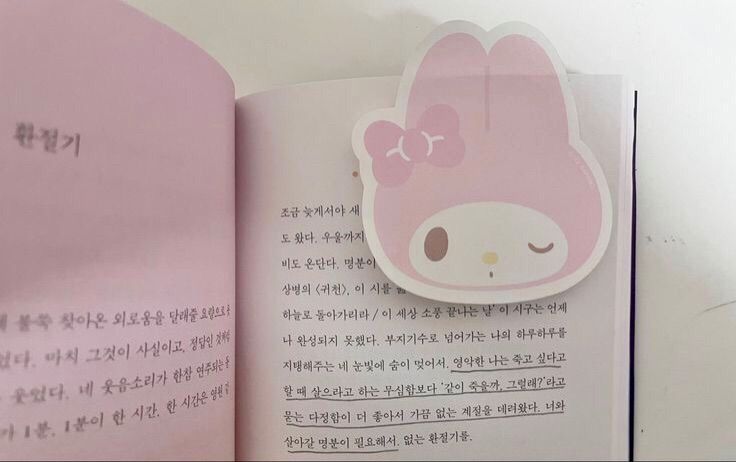 환절기
불쑥 찾아온 외로움을 달래줄 요량으로
었다. 마치 그것이 사실이고, 정답인 것처럼
웃었다. 네 웃음소리가 한참 연주되는
가 1분, 1분이 한 시간, 한 시간은 영원
조금 늦게서야 새
도 왔다. 우울까지
비도 온단다. 명분이
상병의 〈귀천〉, 이 시를
하늘로 돌아가리라 / 이 세상 소풍 끝나는 날' 이 시구는 언제
나 완성되지 못했다. 부지기수로 넘어가는 나의 하루하루를
지탱해주는 네 눈빛에 숨이 멎어서. 영악한 나는 죽고 싶다고
할 때 살으라고 하는 무심함보다 '같이 죽을까, 그럴래?'라고
묻는 다정함이 더 좋아서 가끔 없는 계절을 데려왔다. 너와
살아갈 명분이 필요해서. 없는 환절기를.